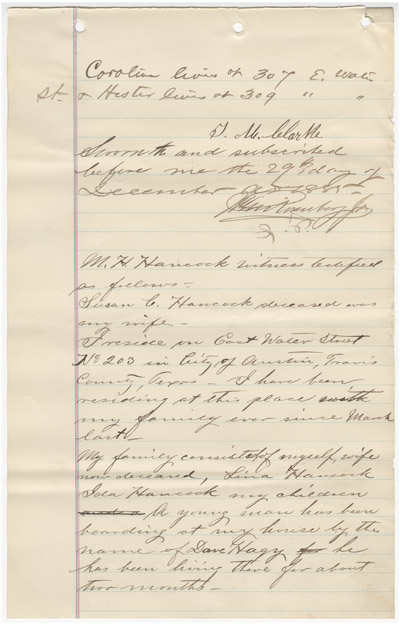 Caroline lives at 307 E. Water
St. & Hester lives at 309 " "
T. M. Clarke
Sworn to and subscribed
before me the 29th day of
December AD 1885-
J. P.
M. H. Hancock witness testified
as follows-
Susan C. Hancock deceased was
my wife-
I reside on East Water Street
No 203 in City of Austin, Travis
County, Texas- I have been
residing at this place with
my family ever since March
last-
My family consists of myself, wife
now deceased, Lina Hancock
Ida Hancock my children
A young man has been
boarding at my house by the
name of Dave Hagy for he
has been living there for about
two months-